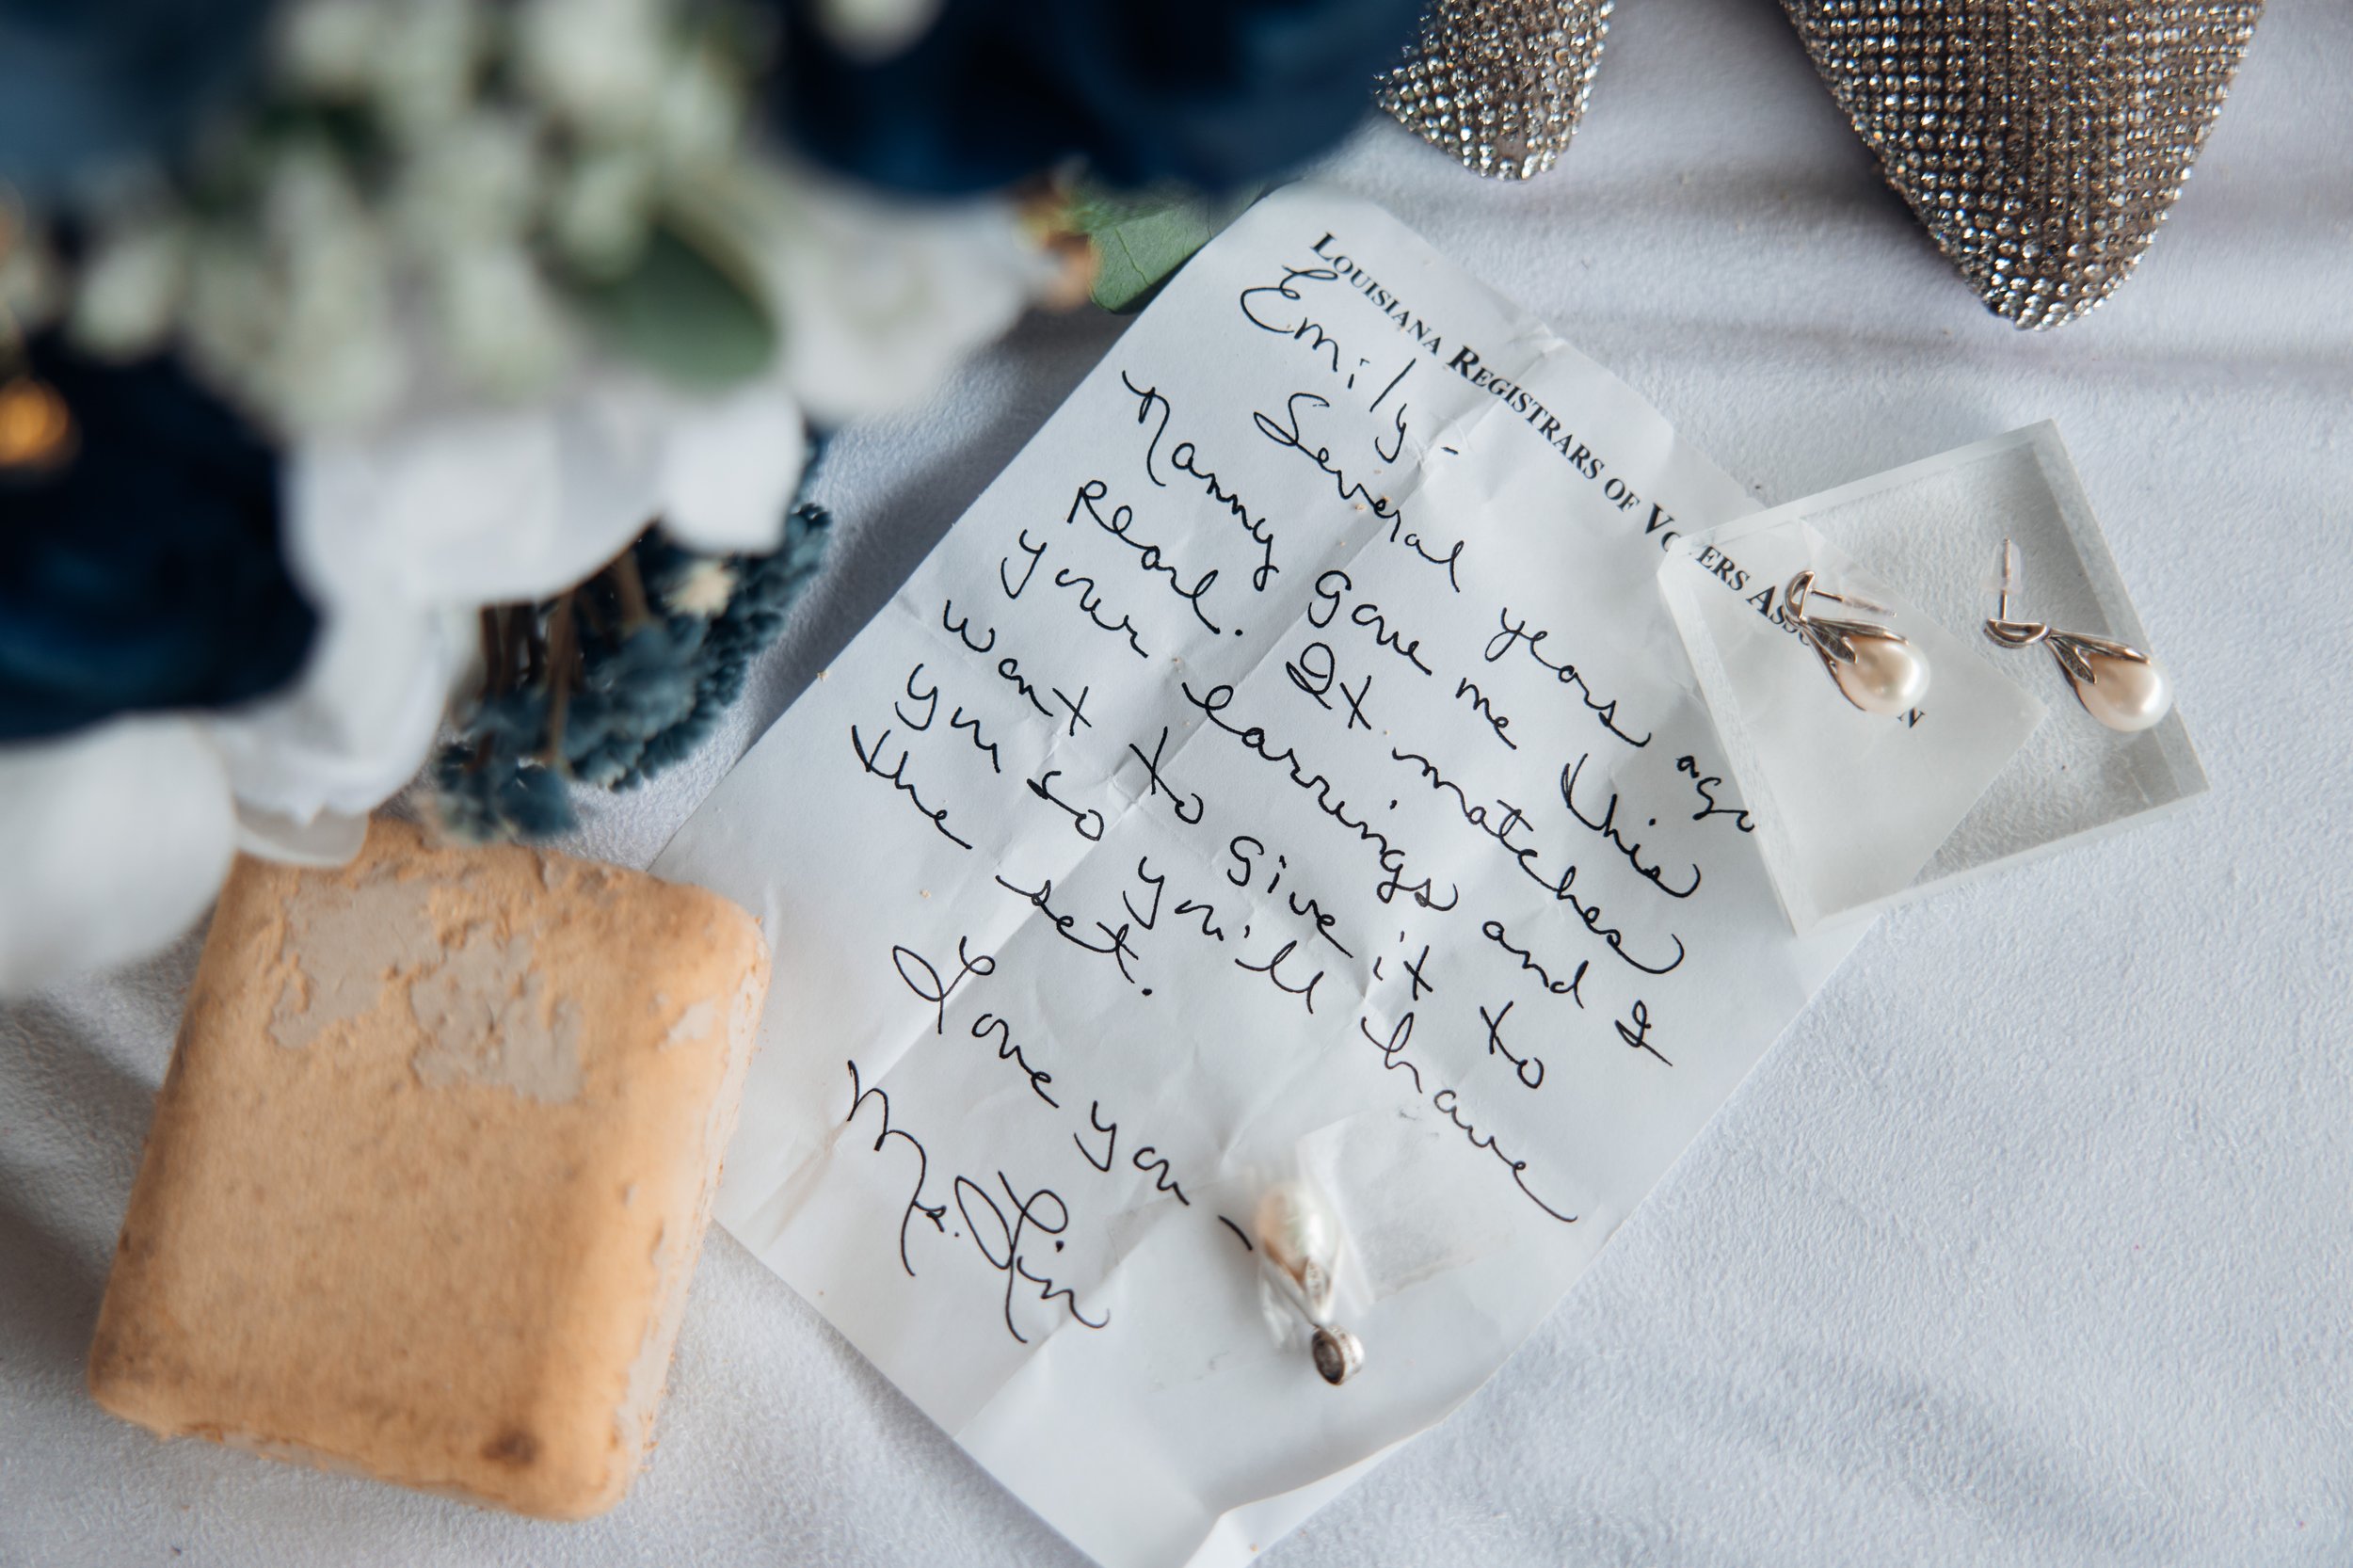 LOUISIANA REGISTRARS OF VOTERS ASSOCIATION
Emily-
Several years ago
Nanny gave me this
pearl. It matches
your earrings and I
want to give it to
you so you'll have
the set.
Love you -